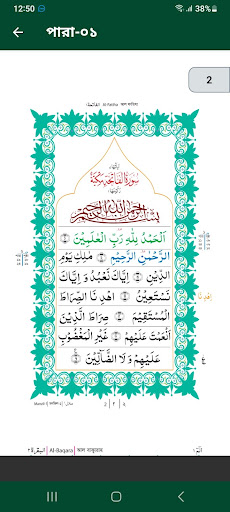 12:50
38%
পারা-০১
2
Al-Fatiha আল ফাতিহা
سُوْرَةُ الْفَاتِحَةِ مَكِّيَّةٌ
بِسْمِ اللّٰهِ الرَّحْمٰنِ الرَّحِيْمِ
اَلْحَمْدُ لِلّٰهِ رَبِّ الْعٰلَمِيْنَ ۝
الرَّحْمٰنِ الرَّحِيْمِ ۝ مٰلِكِ يَوْمِ
الدِّيْنِ ۝ اِيَّاكَ نَعْبُدُ وَ اِيَّاكَ
نَسْتَعِيْنُ ۝ اِهْدِ نَا الصِّرَاطَ
الْمُسْتَقِيْمَ ۝ صِرَاطَ الَّذِيْنَ
اَنْعَمْتَ عَلَيْهِمْ ۝ غَيْرِ الْمَغْضُوْبِ
عَلَيْهِمْ وَ لَا الضَّآلِّيْنَ ۝
اِهْدِ نَا
ع
2
Al-Baqara
الٓمّٓ ١